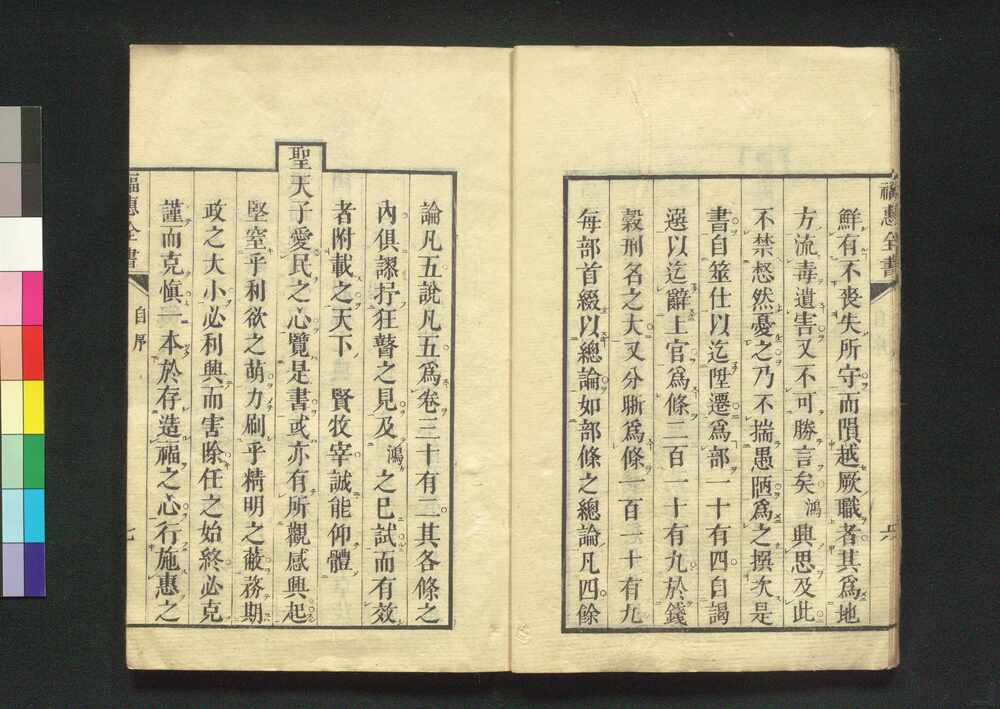 福惠全書
鮮有不喪失所守而隕越厥職者其爲地
方流毒遺害又不可勝言矣鴻興思及此
不禁惄然憂之乃不揣愚陋爲之撰次是
書自筮仕以迄陞遷爲部一十有四自謁
選以迄辭上官爲條二百一十有九於錢
穀刑名之大又分晰爲條一百一十有九
每部首綴以總論如部條之總論凡四餘
論凡五說凡五爲卷三十有二其各條之
內俱謬抒狂瞽之見及鴻之已試而有效
者附載之天下 賢牧宰誠能仰體
聖天子愛民之心覽是書或亦有所觀感興起
堅窒乎利欲之萌力刷乎精明之蔽務期
政之大小必利興而害除任之始終必克
謹而克愼一本於存造福之心行施惠之
福惠全書
自序
七